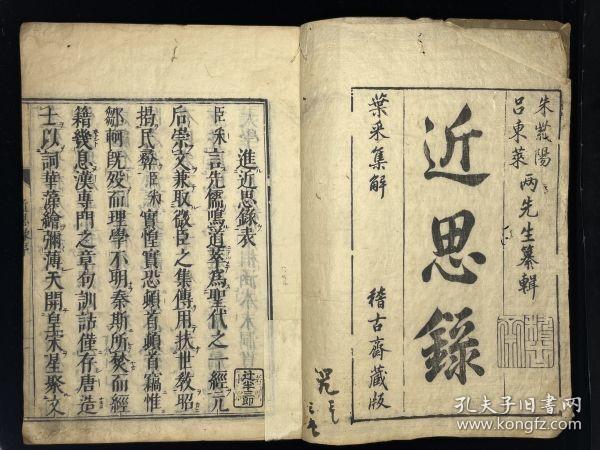 朱紫陽
呂東萊
兩先生纂輯
近思錄
葉采集解
稽古齋藏版
進近思錄表
臣采言先儒鳴道萃爲聖代之一經元
后崇文兼取微臣之集傳用扶世敎昭
揭民彝臣采實惶實恐頓首頓首竊惟
鄒軻旣歿而理學不明秦斯所焚而經
籍幾息漢專門之章句訓詁僅存唐造
士以詞華藻繪彌薄天開皇宋星聚文
孔夫子旧书网
book.kongfz.com